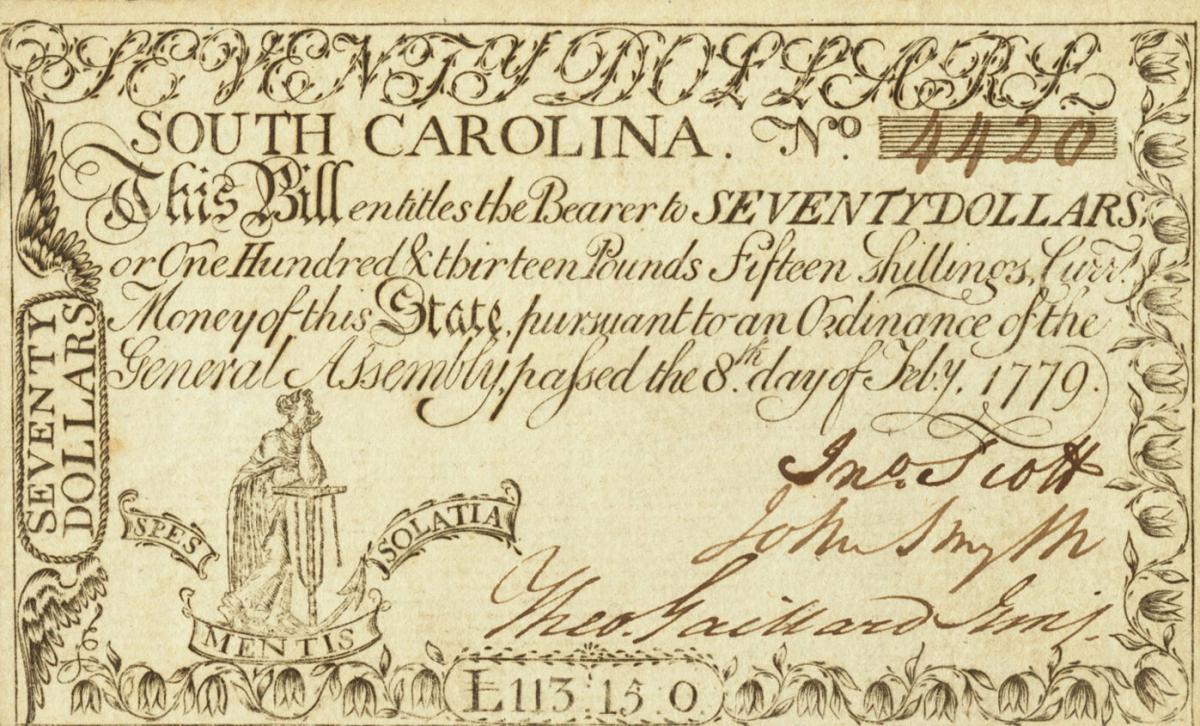 SEVENTY DOLLARS
SOUTH CAROLINA. No. 4420
This Bill entitles the Bearer to SEVENTY DOLLARS,
or One Hundred & thirteen Pounds Fifteen shillings, Curr.t
Money of this State, pursuant to an Ordinance of the
General Assembly, paſsed the 8.th day of Feb.y, 1779.
SEVENTY
DOLLARS
Jno. Scott
John Smyth
Theo. Gaillard Junr.
SPES
SOLATIA
MENTIS
£113:15.0.